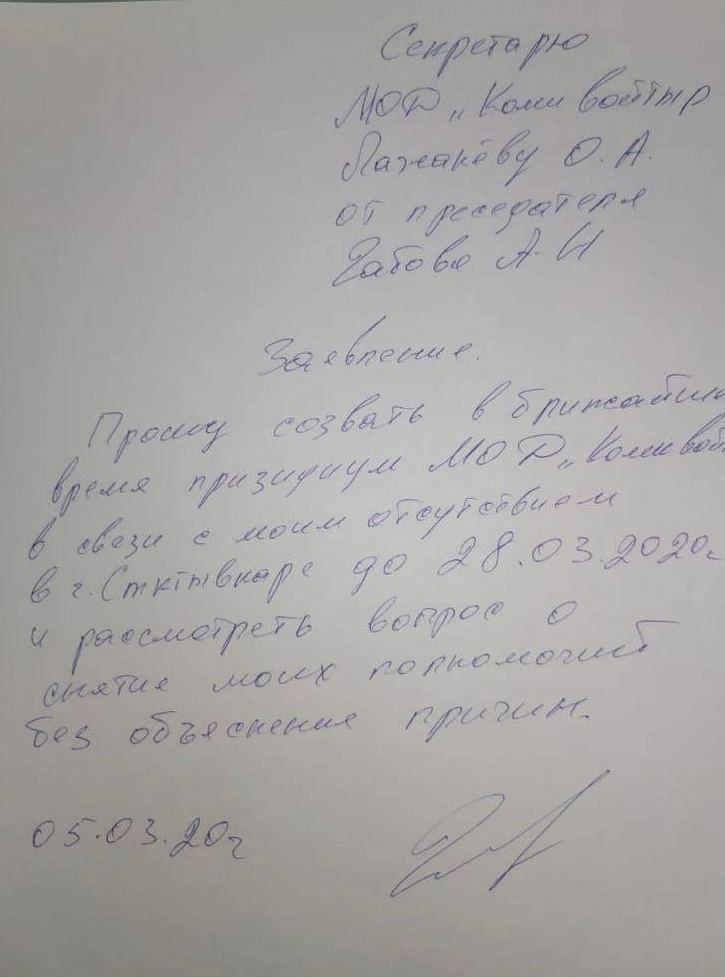 Секретарю
МОД „Коми войтыр
Лажанёву О. А.
от преседателя
Габова А. Н
Заявление.
Прошу созвать в ближайши
время призидиум МОД „Коми вой
в связи с моим отсутствием
в г. Сыктывкаре до 28.03.2020г
и рассмотреть вопрос о
снятие моих полномочий
без объяснение причин.
05.03.20г